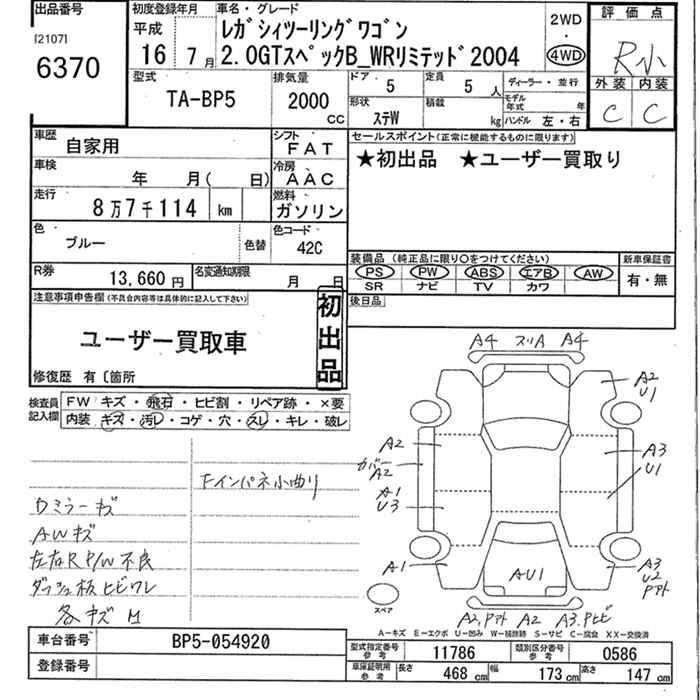 出品番号 初度登録年月 車名・グレード 2WD 評価点
[2107] 平成 レガシィツーリングワゴン ・
6370 16年 7月 2.0GTスペックB_WRリミテッド2004 4WD R小
型式 排気量 ドア 定員 ディーラー・並行 外装 内装
TA-BP5 2000 CC 5 5人 モデル年式 年 C C
形状 ステW 積載 kg ハンドル 左・右
車歴 自家用 シフト FAT セールスポイント(正常に機能するものに限ります)
車検 年 月( 日) 冷房 AAC ★初出品 ★ユーザー買取り
走行 8万7千114 km 燃料 ガソリン
色 ブルー 色替 色コード 42C
装備品 (純正品に限り〇をつけてください) 新車保証書
PS PW ABS エアB AW 有・無
SR ナビ TV カワ
R券 13,660円 名変通知期限 月 日 後日品
注意事項申告欄(不具合内容等は具体的に記入して下さい) 初出品
ユーザー買取車
修復歴 有〔箇所
検査員記入欄 FW キズ・飛石・ヒビ割・リペア跡・×要
内装・キズ・汚レ・コゲ・穴・スレ・キレ・破レ
A4 スリA A4
A2 U1
A2 A3
カバー A2 U1
A1 U3
A1 A3 U2
AU1
A2. A2 A3.
スペア
Fインパネ小曲り
Dミラーキズ
AWキズ
左右R P/W不良
ダッシュ板ヒビワレ
各キズM
A-キズ E-エクボ U-凹み W-補修跡 S-サビ C-腐食 XX-交換済
車台番号 BP5-054920 型式指定番号 参考 11786 類別区分番号 参考 0586
登録番号 車庫証明用 参考 長さ 468cm 幅 173cm 高さ 147cm